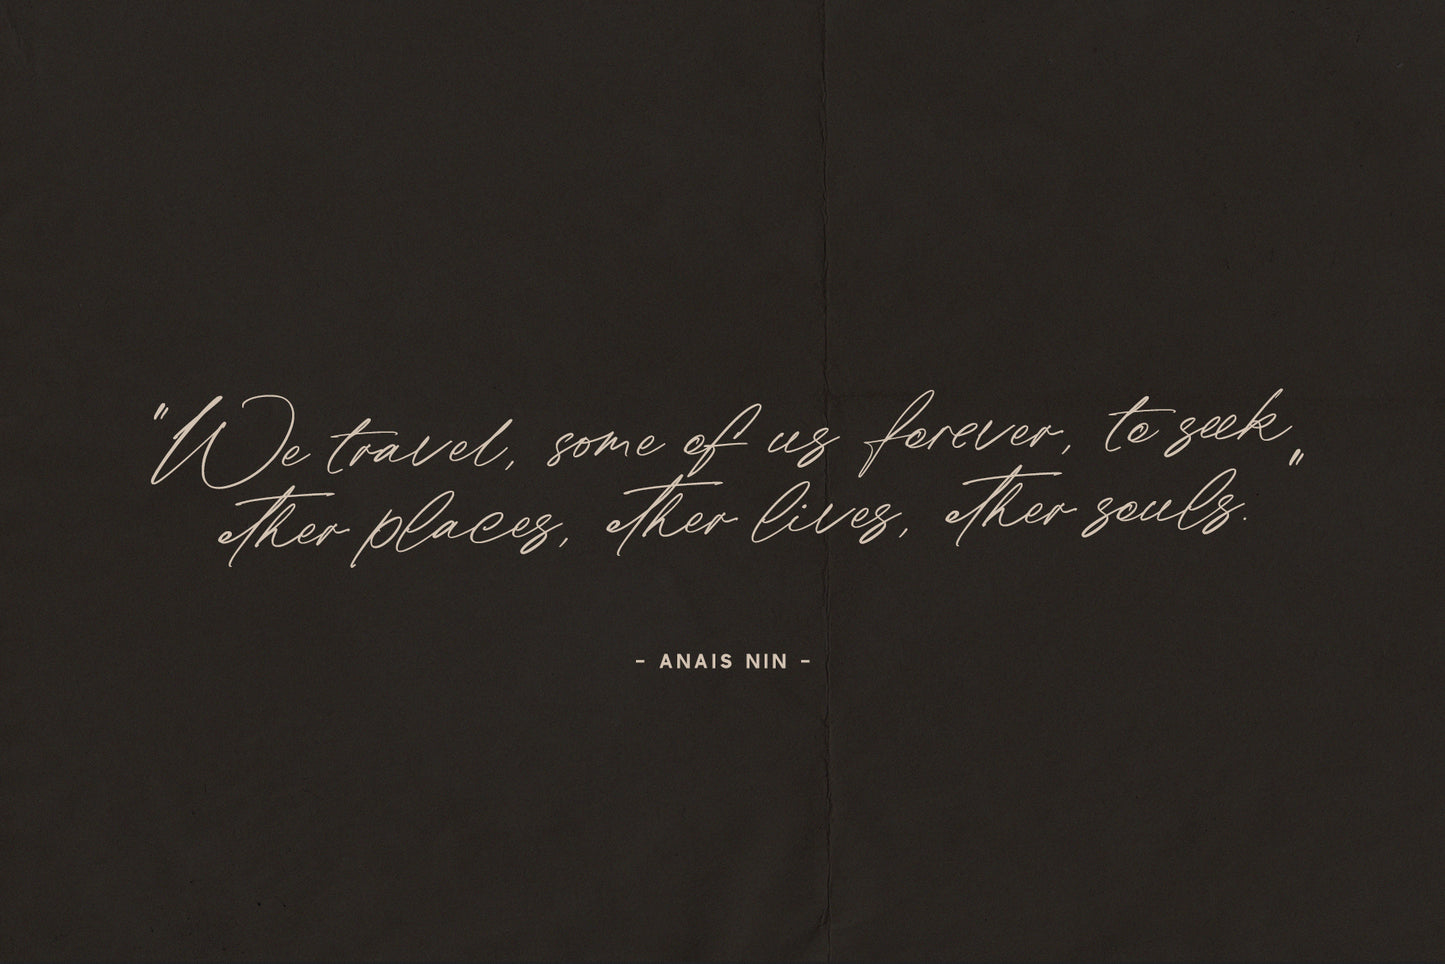 "We travel, some of us forever, to seek
other places, other lives, other souls."
- ANAIS NIN -